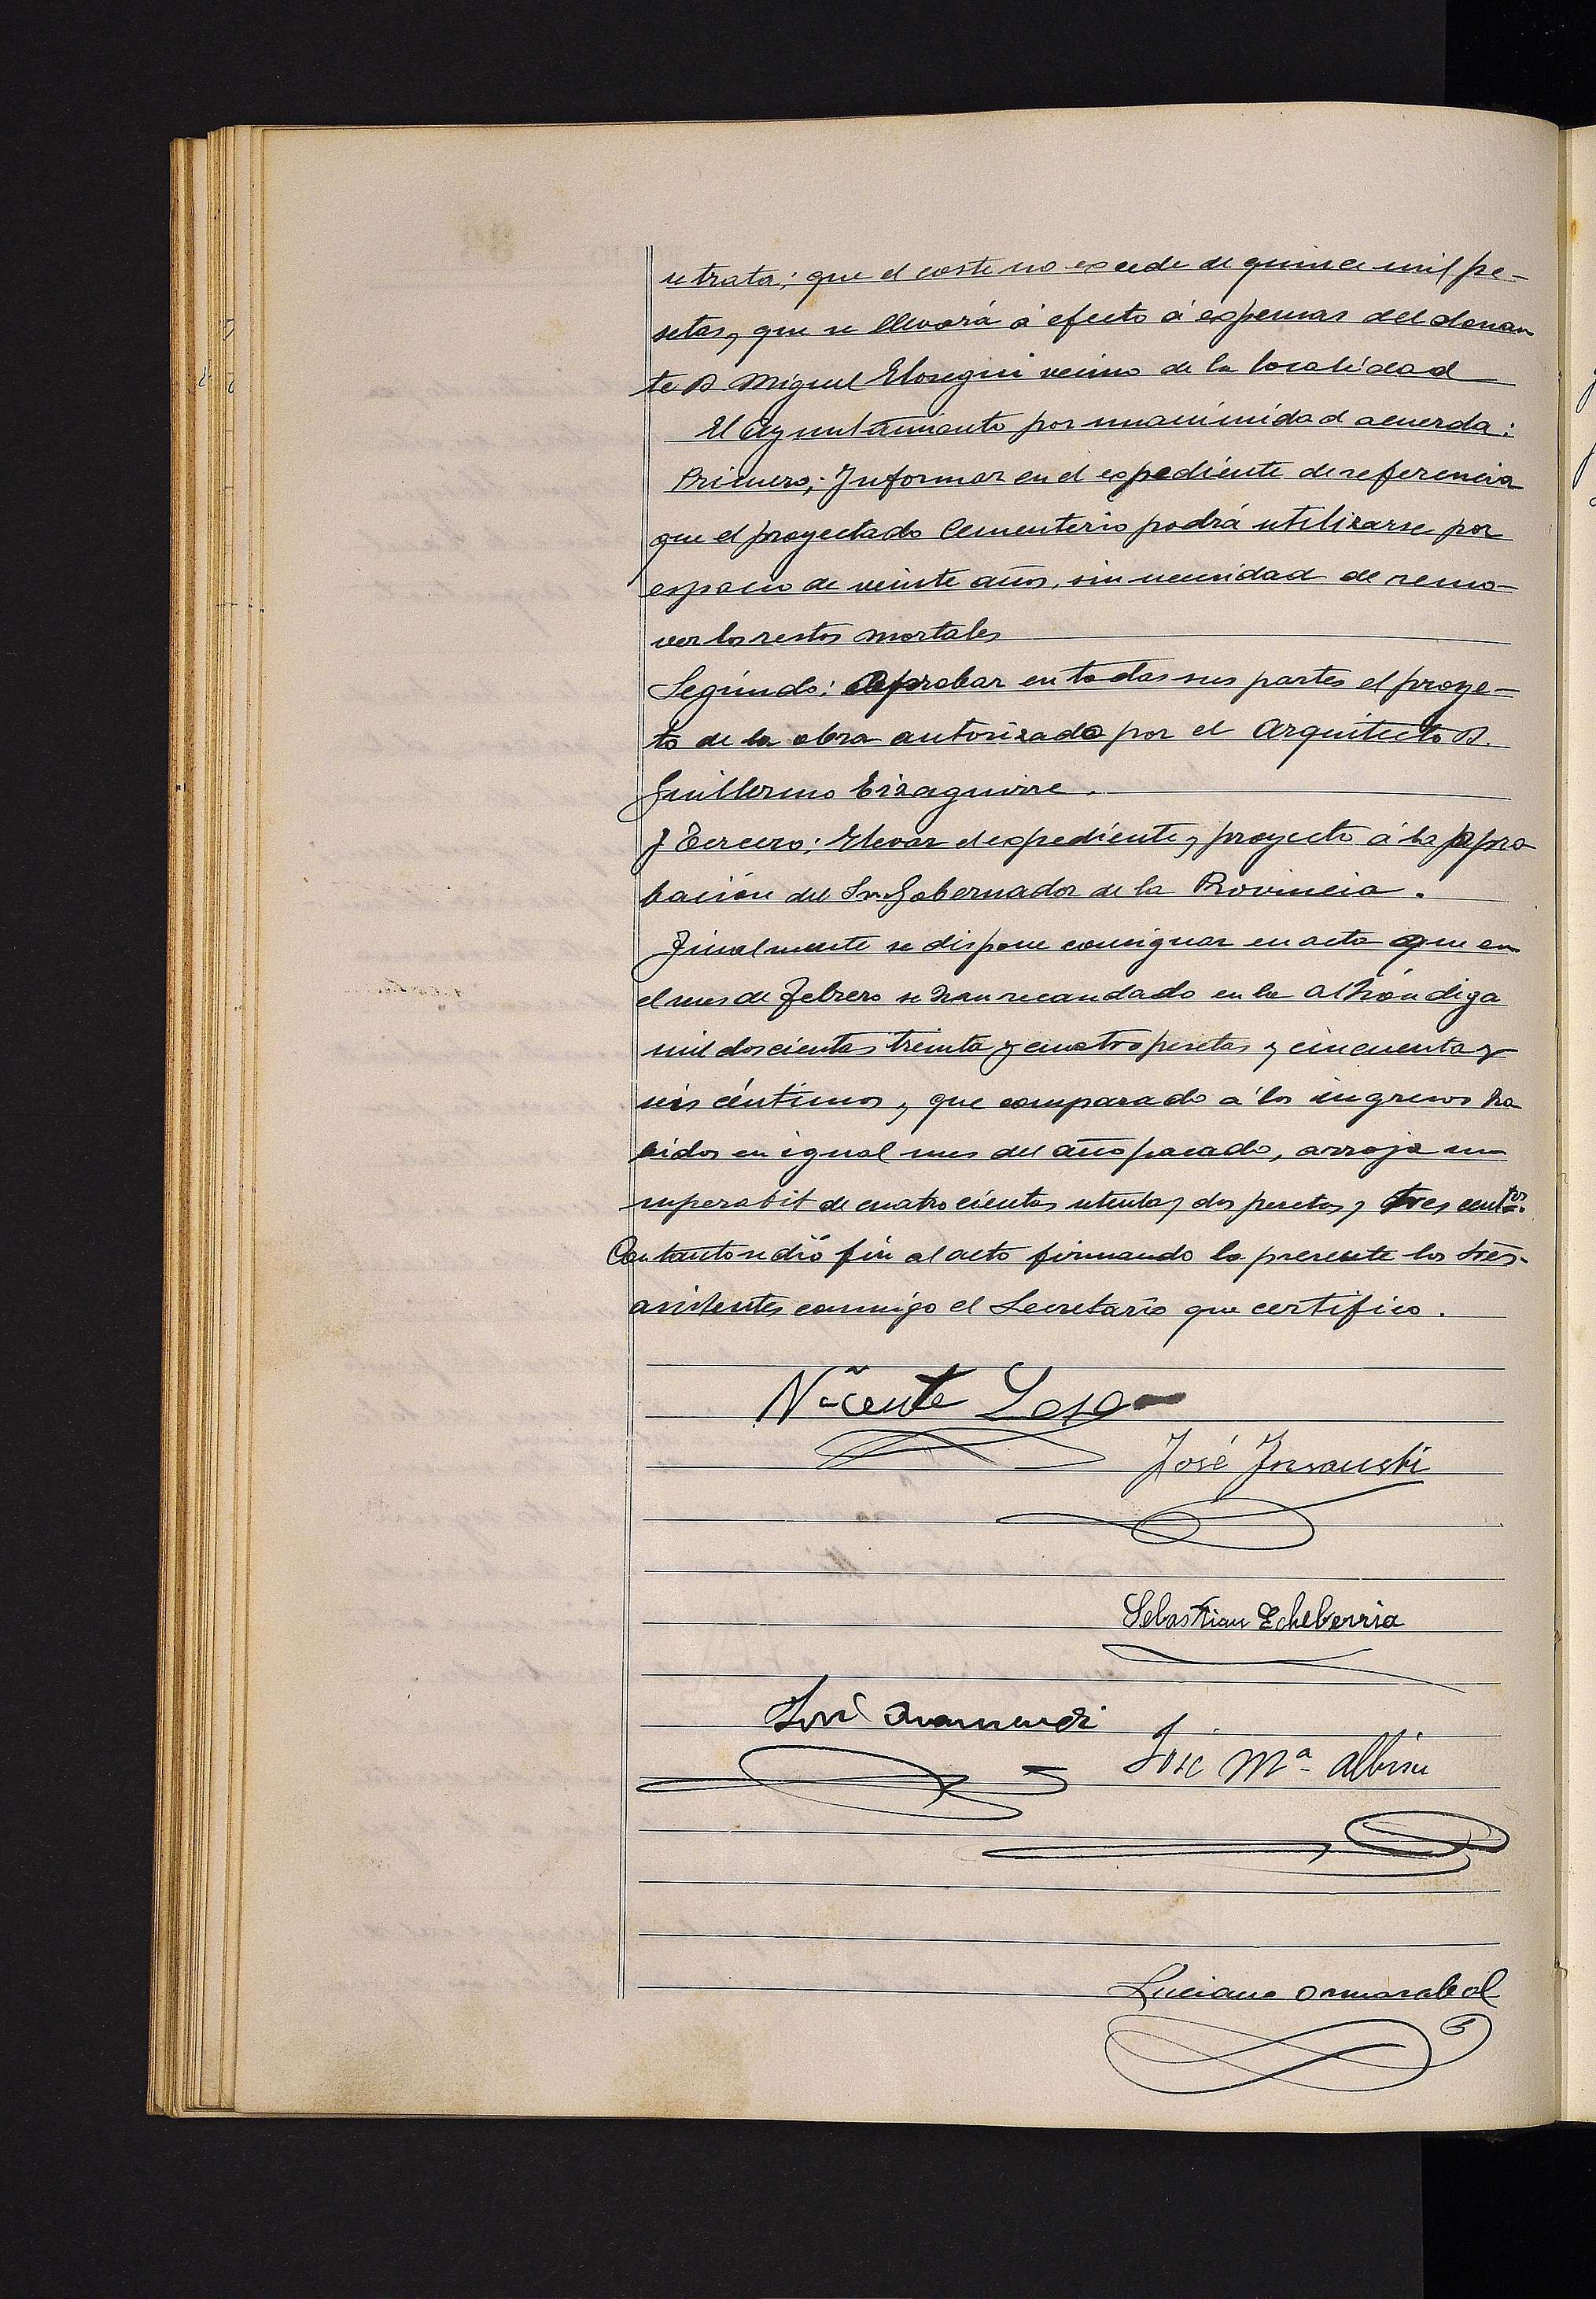 se trata; que el coste no excede de quince mil pe-
setas, que se llevará á efecto á expensas del donan
te D Miguel Elosegui vecino de la localidad
El Ayuntamiento por unanimidad acuerda:
Primero; Informar en el expediente de referencia
que el proyectado Cementerio podrá utilizarse por
espacio de veinte años, sin necesidad de remo-
ver los restos mortales
Segundo: Aprobar en todas sus partes el proye-
to de la obra autorizado por el Arquitecto D.
Guillermo Eizaguirre.
Y Tercero: Elevar el expediente y proyecto á la apro
bación del Sr. Gobernador de la Provincia.
Finalmente se dispone consignar en acta que en
el mes de Febrero se han recaudado en la alhóndiga
mil doscientas treinta y cuatro pesetas y cincuenta y
seis céntimos, que comparado á los ingresos ha
bidos en igual mes del año pasado, arroja un
superabit de cuatrocientas setenta y dos pesetas y tres centos.
Con tanto se dió fin al acto firmando la presente los Sres.
asistentes conmigo el Secretario que certifico.
Vicente Lasa
José Insausti
Sebastian Echeberria
José Aramendi
José Mª Albisu
Luciano Ormazabal